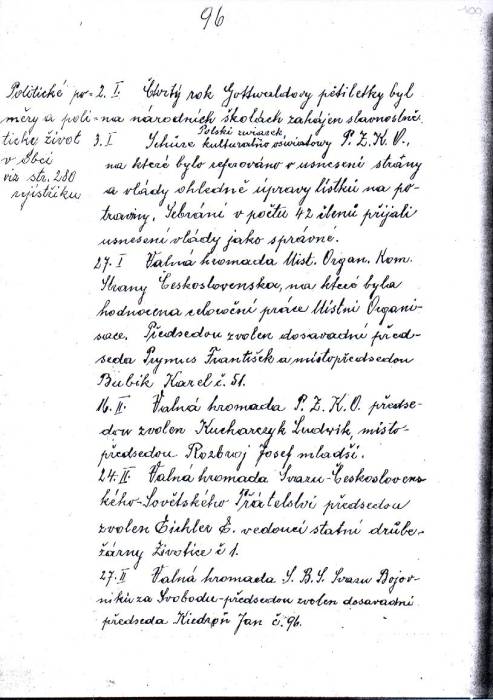 96
100
Politické po-
měry a poli-
tický život
v Obci
viz str. 280
rejstříku
2. I. Čtvrtý rok Gottwaldovy pětiletky byl
na národních školách zahájen slavnostně.
Polski zwiazek
3. I Schůze kulturalno oswiatowy P. Z. K. O.,
na které bylo referováno v usnesení strany
a vlády ohledně úpravy lístků na po-
traviny. Sebrání v počtu 42 členů přijali
usnesení vlády jako správné.
27. I Valná hromada Míst. Organ. Kom.
Strany Československa, na které byla
hodnocena celoroční práce Místní Organi-
sace. Předsedou zvolen dosavadní před-
seda Prymus František a místopředsedou
Bubik Karel č. 51.
16. II. Valná hromada P. Z. K. O. předse-
dou zvolen Kucharczyk Ludwik, místo-
předsedou Rozbroj Josef mladší.
24. II. Valná hromada Svazu-Českosloven-
ského-Sovětského Přátelství předsedou
zvolen Eichler E. vedoucí statní drůbe-
žárny Životice č 1.
27. II Valná hromada S. B. S. Svazu Bojov-
níků za Svobodu-předsedou zvolen dosavadní
předseda Kiedroň Jan č. 96.